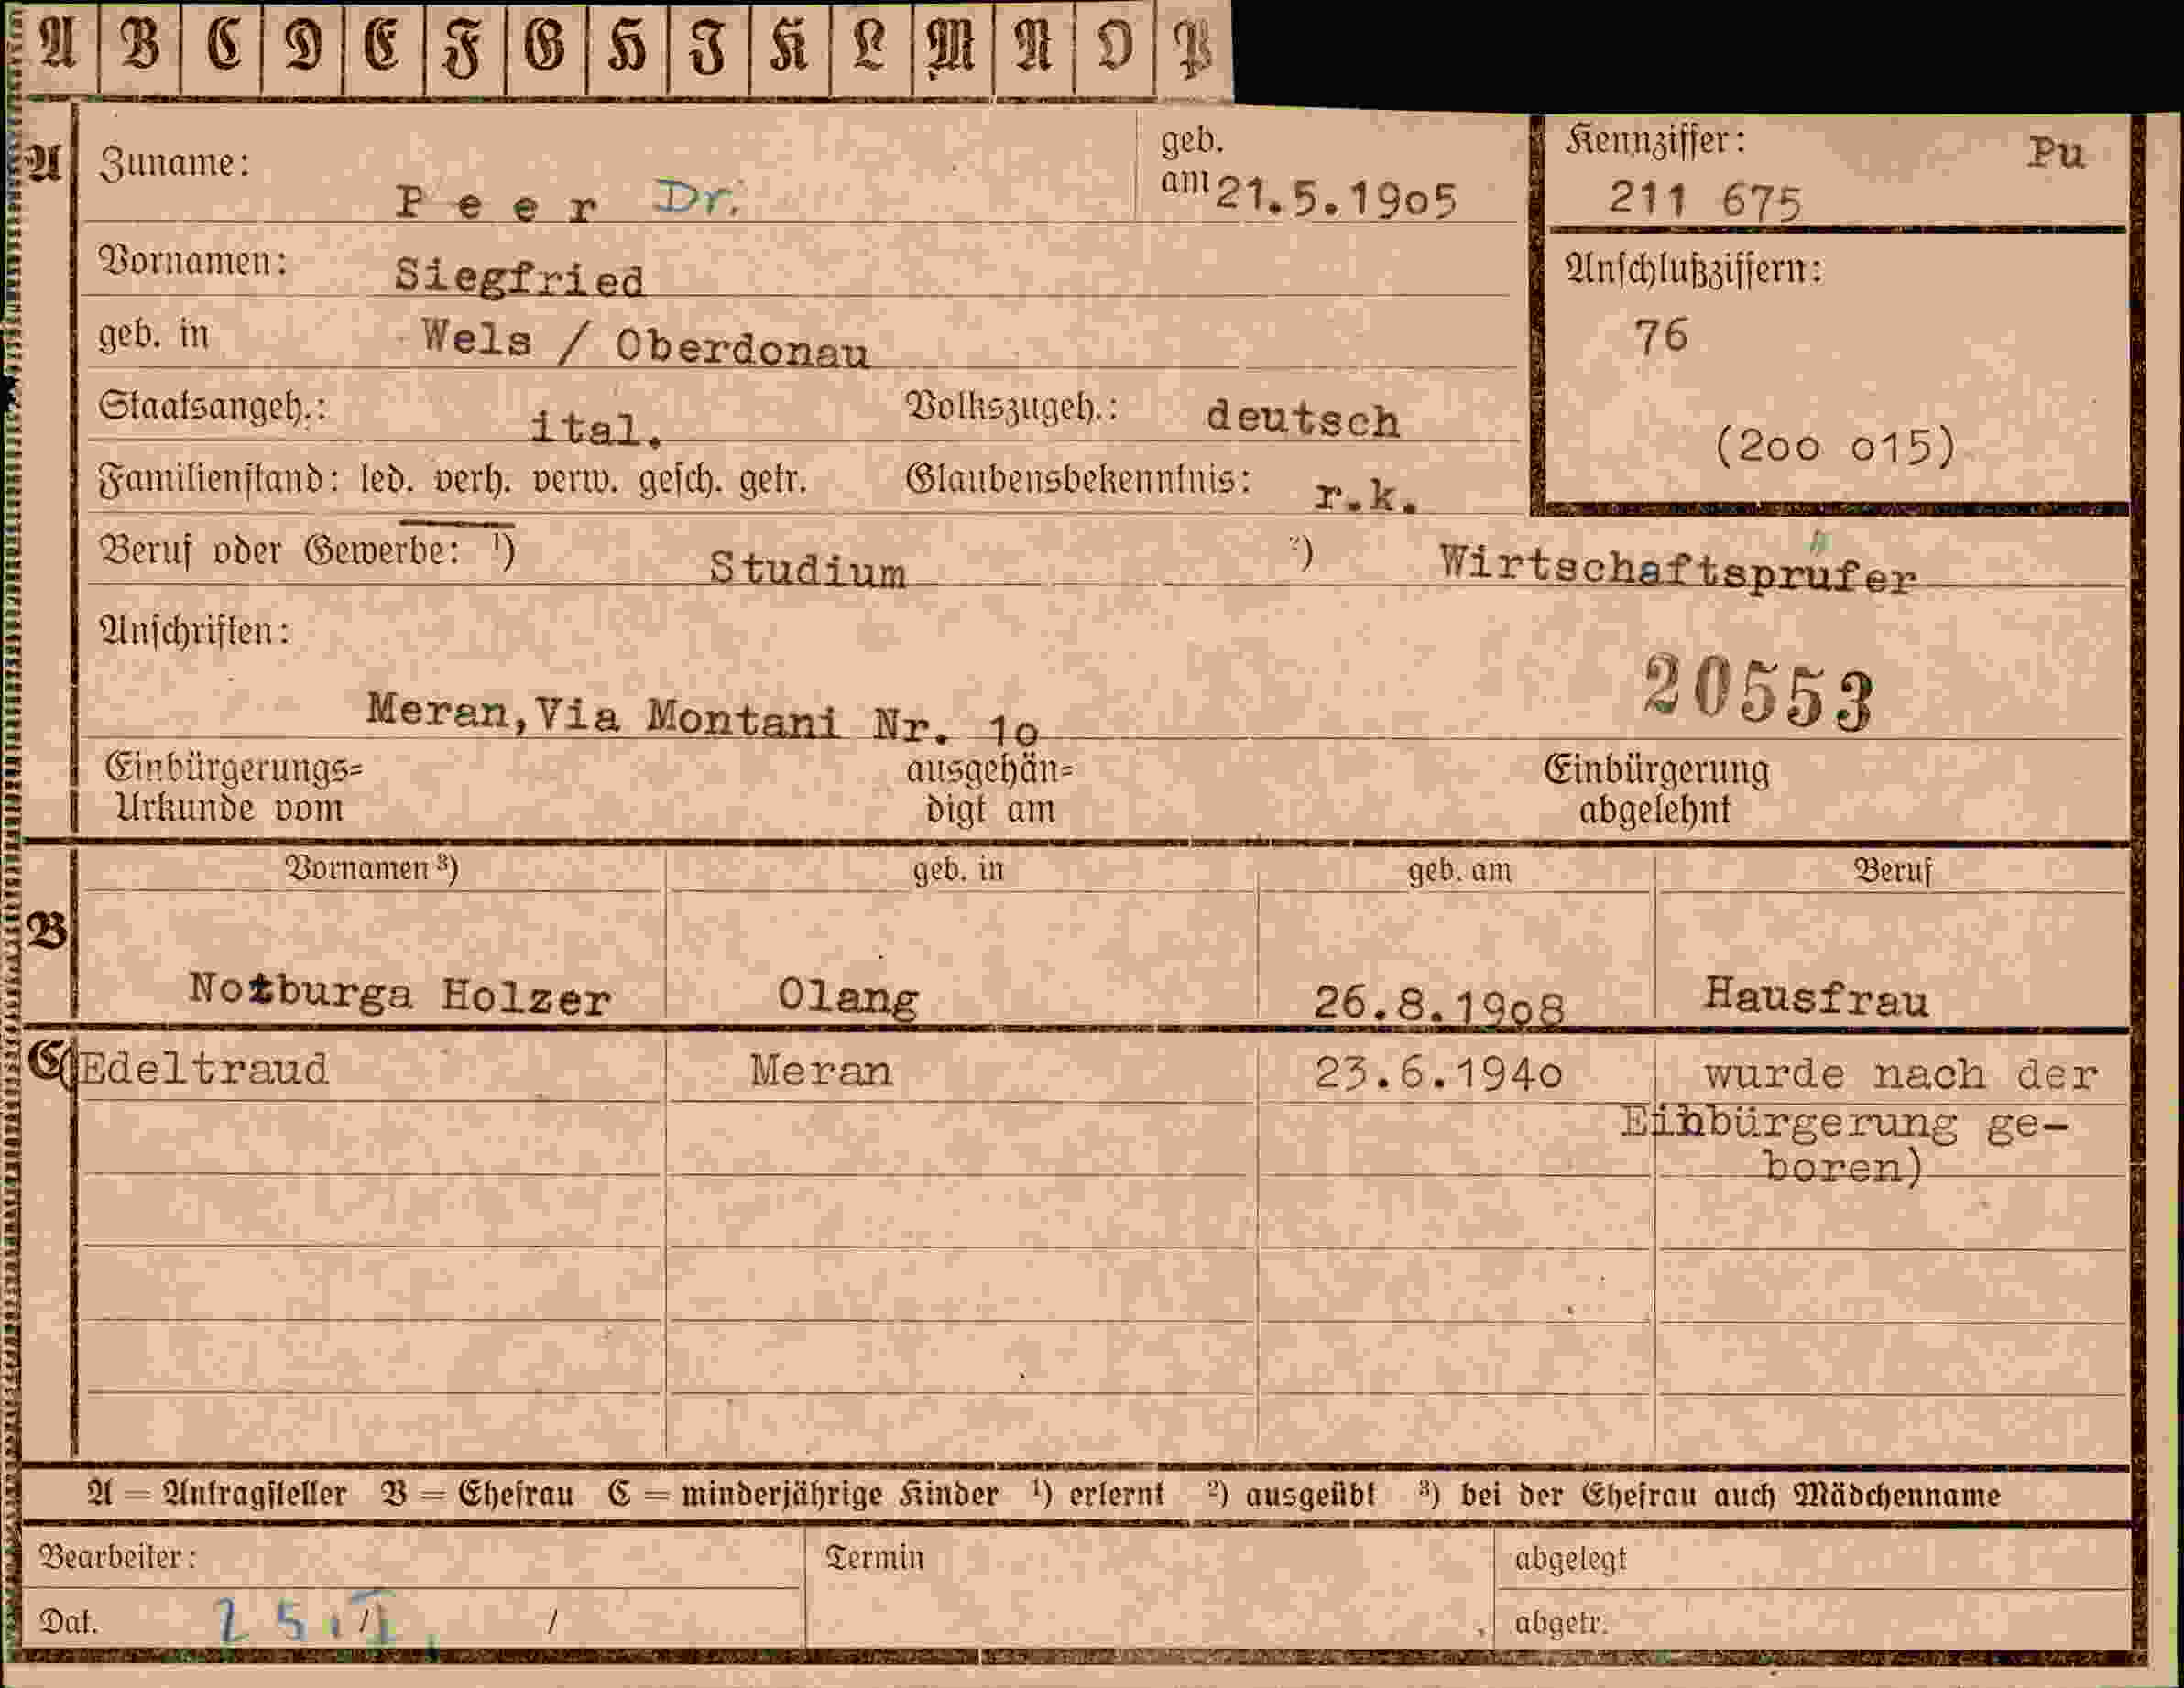 A B C D E F G H J K L M N O P
A Zuname: Peer Dr. geb. am 21.5.1905 Kennziffer: Pu
211 675
Vornamen: Siegfried Anschlußziffern:
geb. in Wels / Oberdonau 76
Staatsangeh.: ital. Volkszugeh.: deutsch (200 015)
Familienstand: led. verh. verw. gesch. getr. Glaubensbekenntnis: r.k.
Beruf oder Gewerbe: 1) Studium 2) Wirtschaftsprüfer
Anschriften:
20553
Meran, Via Montani Nr. 10
Einbürgerungs= ausgehän= Einbürgerung
Urkunde vom digt am abgelehnt
Vornamen 3) geb. in geb. am Beruf
B Notburga Holzer Olang 26.8.1908 Hausfrau
C (Edeltraud Meran 23.6.1940 wurde nach der
Einbürgerung ge-
boren)
A = Antragsteller B = Ehefrau C = minderjährige Kinder 1) erlernt 2) ausgeübt 3) bei der Ehefrau auch Mädchenname
Bearbeiter: Termin abgelegt
Dat. / / abgetr.